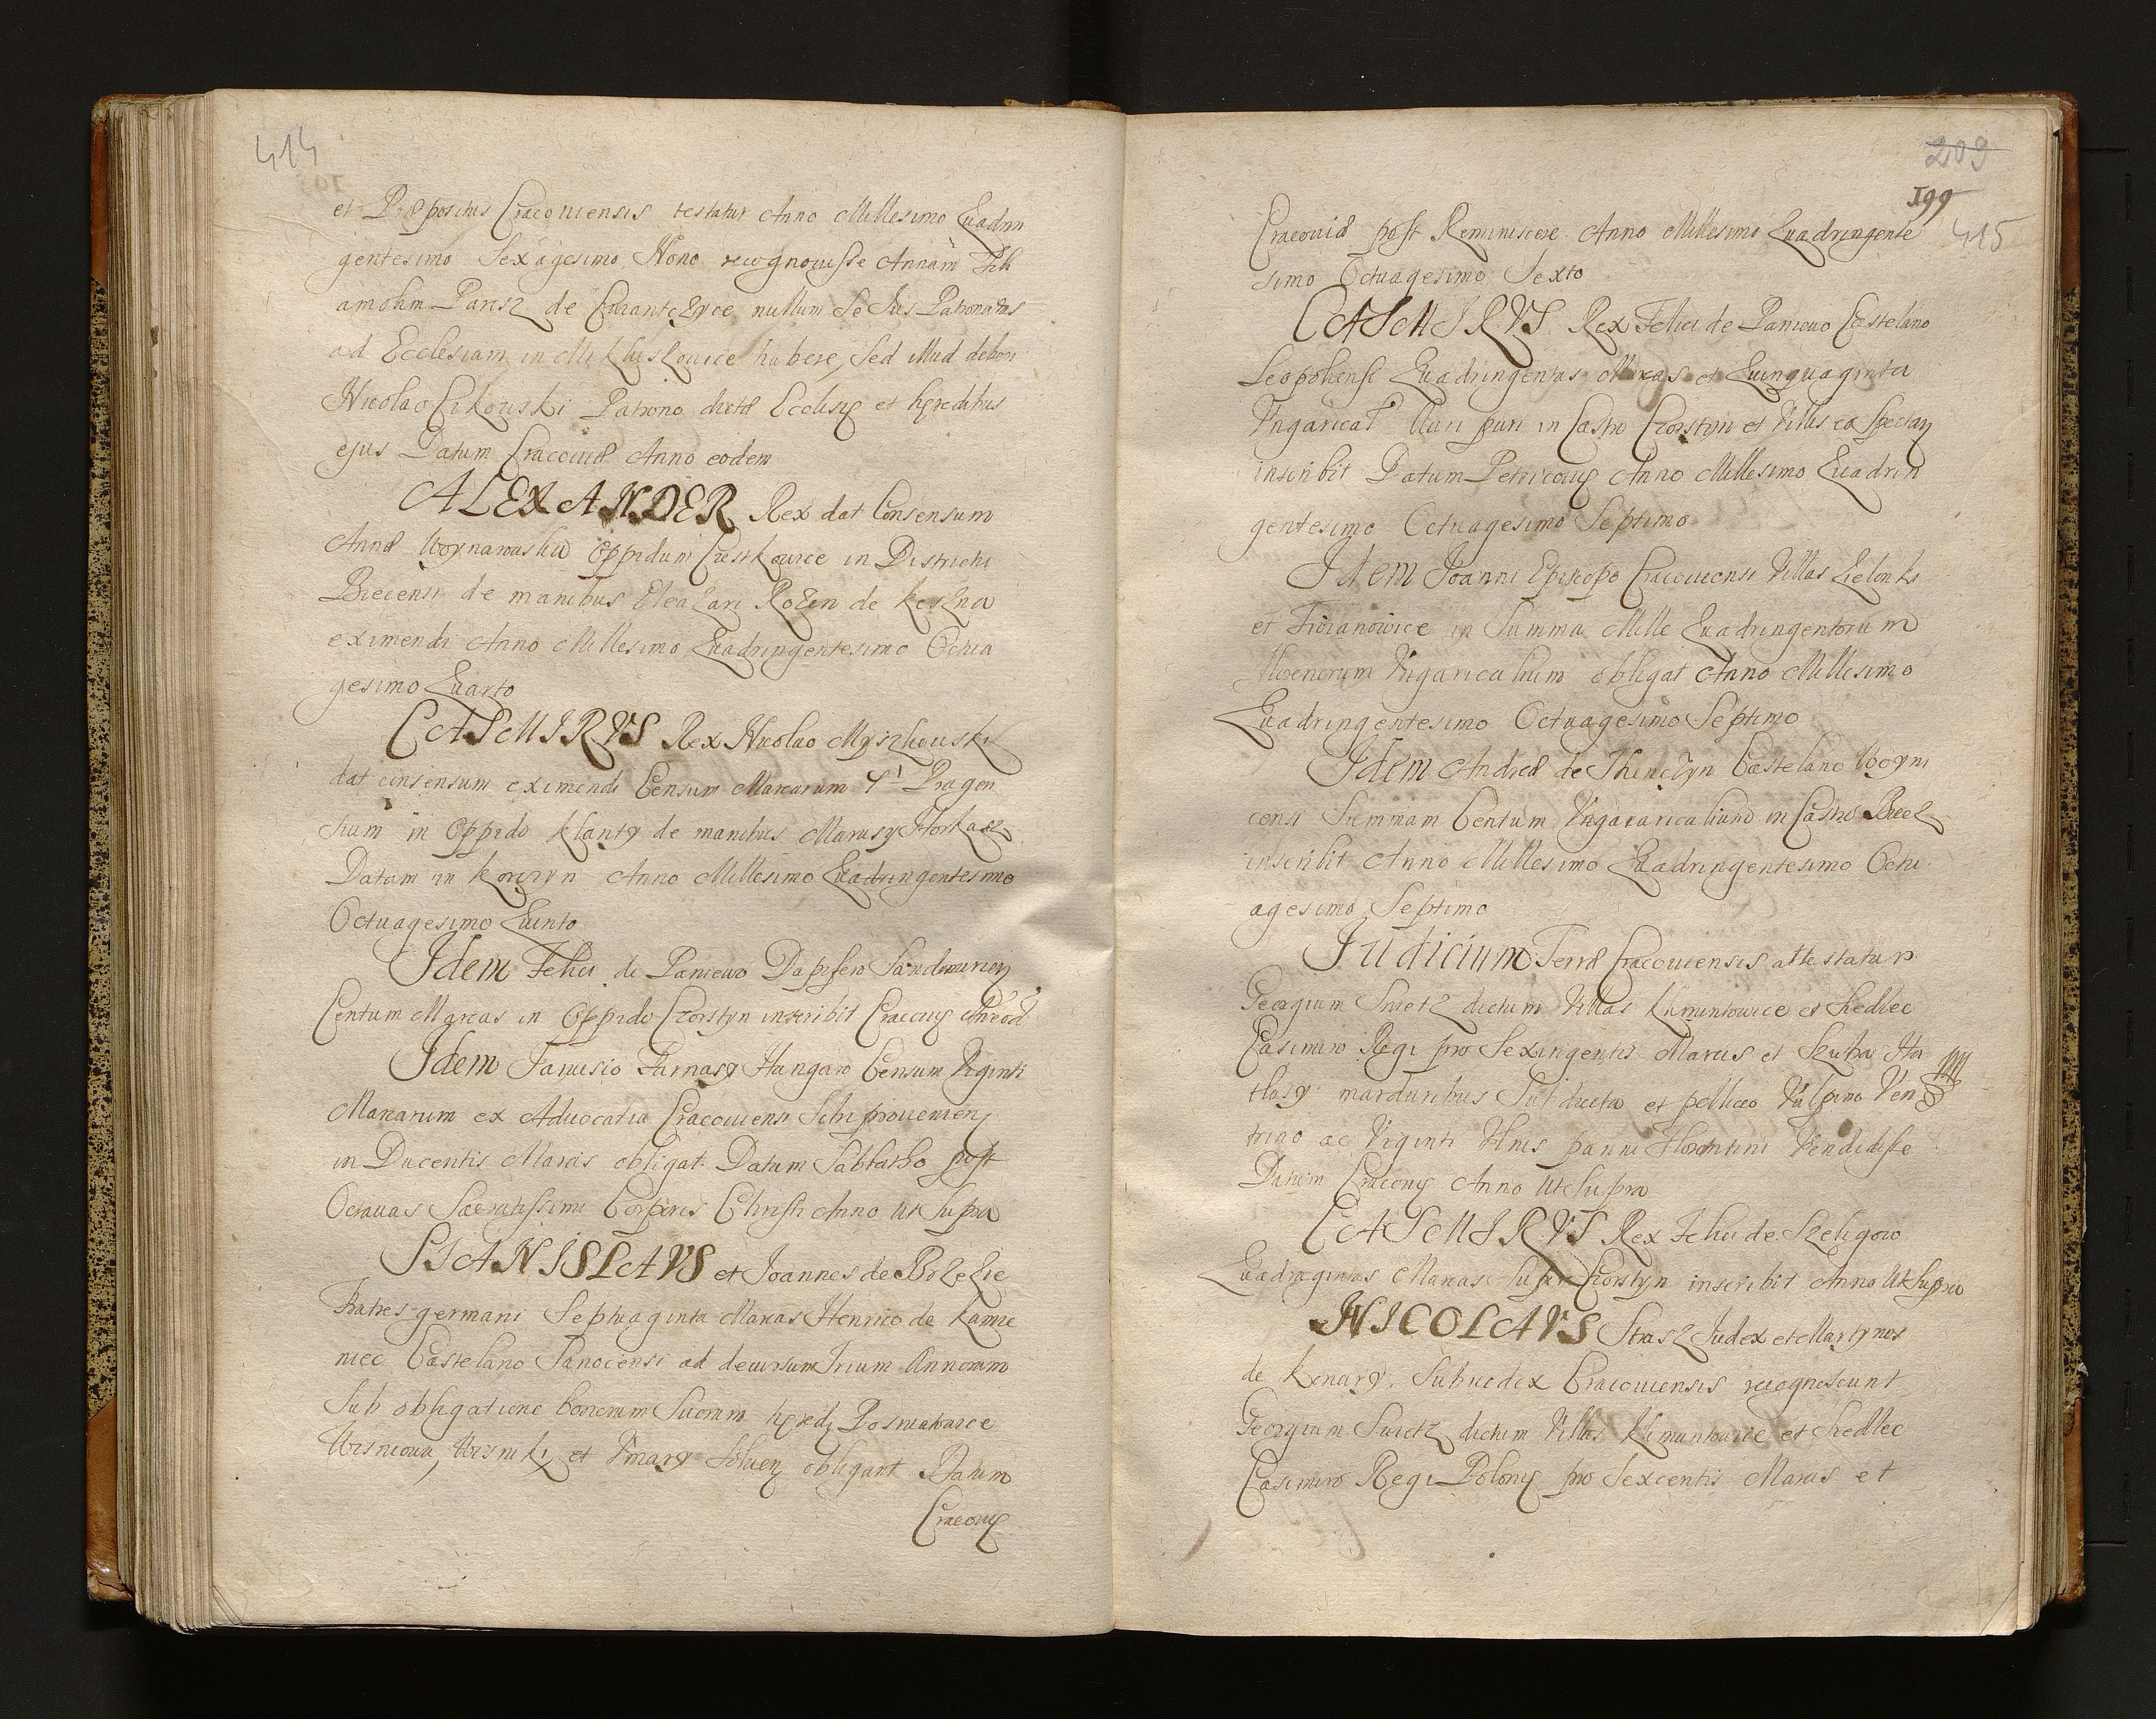 414
et Præpositus Cracouiensis testatur Anno Millesimo Quadrin
gentesimo Sexagesimo Nono recognouisse Annam Feli
amohm Parisz de Chrantczyce nullum se Jus Patronatus
ad Ecclesiam in Mikluszouice habere, sed illud deberi
Nicolao Cikouski Patrono dictæ Ecclesię et hęredibus
ejus Datum Cracouiæ Anno eodem
ALEXANDER Rex dat Consensum
Annæ Woynarouskiu Oppidum Ciestkouice in Districtu
Biecensi de manibus Eleazari Rozen de Keszna
eximendi Anno Millesimo Quadringentesimo Octua
gesimo Quarto
CASMIRVS Rex Nicolao Myszkouski
dat consensum eximendi Censum Marcarum Pragen
sium in Oppido Klanty de manibus Marusy Florkasz
Datum in Korczyn Anno Millesimo Quadringentesimo
Octuagesimo Quinto
Idem Felici de Panieuo Dapifero Sandomirien
Centum Marcas in Oppido Czorstyn inscribit Cracouię
Idem Janusio Farnasy Hungaro Censum Viginti
Marcarum ex Aduocatia Cracouiensi Sibi prouenien
in Ducentis Marcis obligat. Datum Sabbatho post
Octauas Sacratissimi Corporis Christi Anno Ut Supra
STANISLAVS et Joannes de Brzezie
Fratres germani Septuaginta Marcas Henrico de Kamie
niec Castelano Sanocensi ad decursum Trium Annorum
Sub obligatione bonorum Suorum hęredi Posmiechouice
Wisnioua, Wisniki, et Vmary soluen obligant Datum
Cracouię
209
199
415
Cracouiæ post Reminiscere Anno Millesimo Quadringente
simo Octuagesimo Sexto
CASMIRVS Rex Felici de Panieuo Castelano
Leopoliensi Quadringentas Marcas et Quinquaginta
Vngarical Auri puri in Castro Czorstyn et Villis eo spectan
inscribit Datum Petricouię Anno Millesimo Quadrin
gentesimo Octuagesimo Septimo
Idem Joanni Episcopo Cracouiensi Villas Zielonki
et Trojanowice in Summa Mille Quadringentorum
Florenorum Vngaricalium obligat Anno Millesimo
Quadringentesimo Octuagesimo Septimo
Idem Andreæ de Thenczyn Castelano Woyni
censi Summam Centum Vngararicalium in Castro Biecz
inscribit Anno Millesimo Quadringentesimo Octu
agesimo Septimo
Judicium Terræ Cracouiensis attestatur
Georgium Swietz dictum Villas Klimuntouice et Chedlec
Casimiro Regi pro Sexingentis Marcis et Szuba Ha
tlasy marduribus Subducta et pelliceo Vulpino Ven
trino ac Viginti Ulnis panni Florentini Vendidisse
Datum Cracouię Anno Ut Supra
CASMIRVS Rex Felici de Szeligow
Quadragintas Marcas Super Czorstyn inscribit Anno Ut Supra
NICOLAVS Strasz Judex et Martynus
de Kxnary, Subiudex Cracouiensis recognoscunt
Georgium Swietz dictum Villas Klimuntouice et Chedlec
Casimiro Regi Polonię pro Sexcentis Marcis et